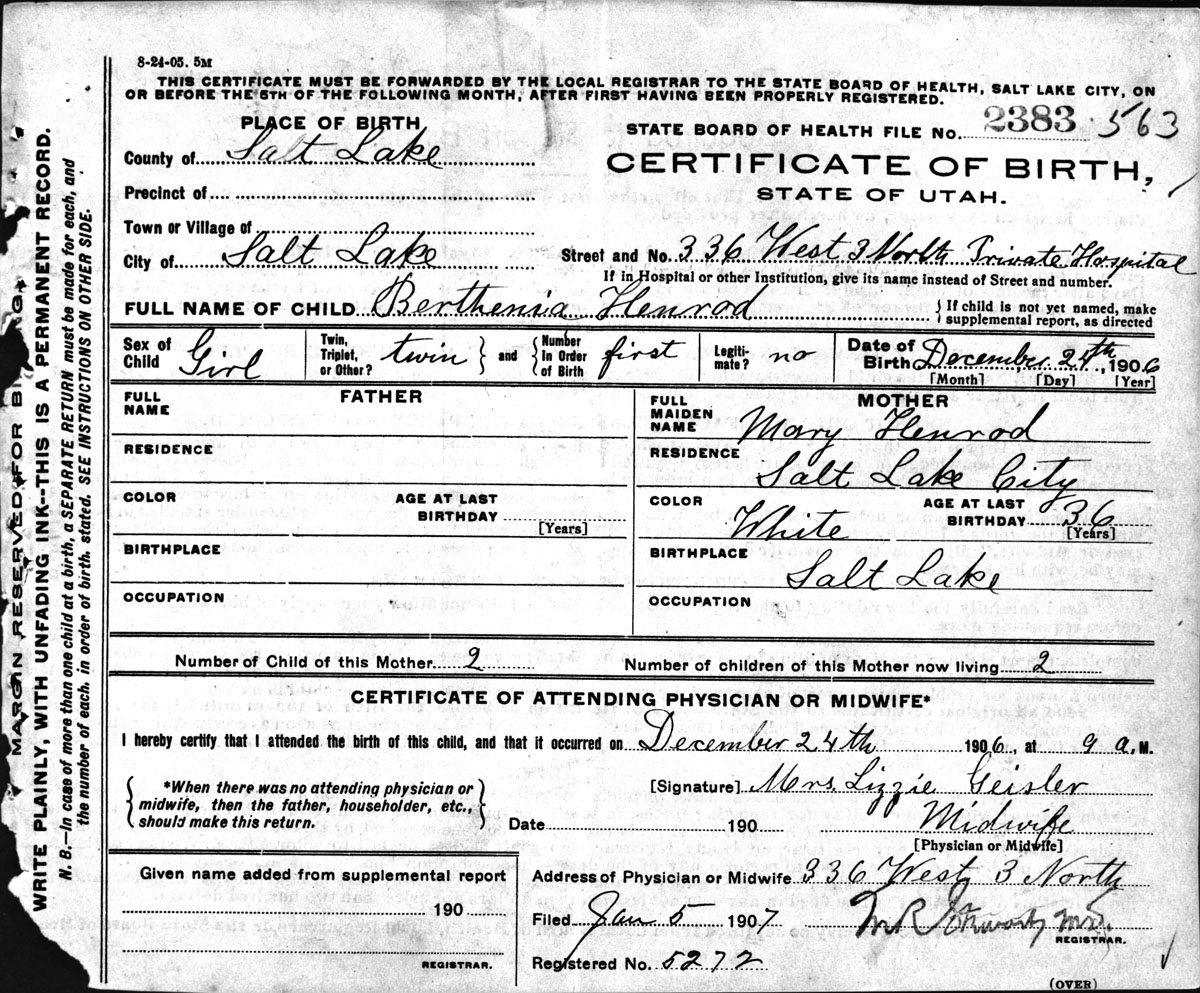 8-24-05. 5M
THIS CERTIFICATE MUST BE FORWARDED BY THE LOCAL REGISTRAR TO THE STATE BOARD OF HEALTH, SALT LAKE CITY, ON
OR BEFORE THE 5TH OF THE FOLLOWING MONTH, AFTER FIRST HAVING BEEN PROPERLY REGISTERED.
PLACE OF BIRTH
STATE BOARD OF HEALTH FILE No. 2383 563
County of Salt Lake
CERTIFICATE OF BIRTH,
STATE OF UTAH.
Precinct of
Town or Village of
City of Salt Lake
Street and No. 336 West 3 North Private Hospital
If in Hospital or other Institution, give its name instead of Street and number.
FULL NAME OF CHILD Berthenia Henrod
{ If child is not yet named, make
supplemental report, as directed
Sex of Child Girl
Twin, Triplet, or Other? twin } and { Number In Order of Birth first
Legiti- mate? no
Date of Birth December 24th, 1906
[Month] [Day] [Year]
FATHER
FULL NAME
RESIDENCE
COLOR
AGE AT LAST BIRTHDAY
[Years]
BIRTHPLACE
OCCUPATION
MOTHER
FULL MAIDEN NAME Mary Henrod
RESIDENCE Salt Lake City
COLOR White
AGE AT LAST BIRTHDAY 36
[Years]
BIRTHPLACE Salt Lake
OCCUPATION
Number of Child of this Mother 2
Number of children of this Mother now living 2
CERTIFICATE OF ATTENDING PHYSICIAN OR MIDWIFE*
I hereby certify that I attended the birth of this child, and that it occurred on December 24th 1906, at 9 a.M.
{ *When there was no attending physician or
midwife, then the father, householder, etc.,
should make this return. }
[Signature] Mrs. Lizzie Geisler
Date 190 Midwife
[Physician or Midwife]
Given name added from supplemental report
190
REGISTRAR.
Address of Physician or Midwife 336 West 3 North
Filed Jan 5 1907
REGISTRAR.
Registered No. 5272
(OVER)
MARGIN RESERVED FOR BINDING
WRITE PLAINLY, WITH UNFADING INK--THIS IS A PERMANENT RECORD.
N. B.—In case of more than one child at a birth, a SEPARATE RETURN must be made for each, and
the number of each, in order of birth, stated. SEE INSTRUCTIONS ON OTHER SIDE.